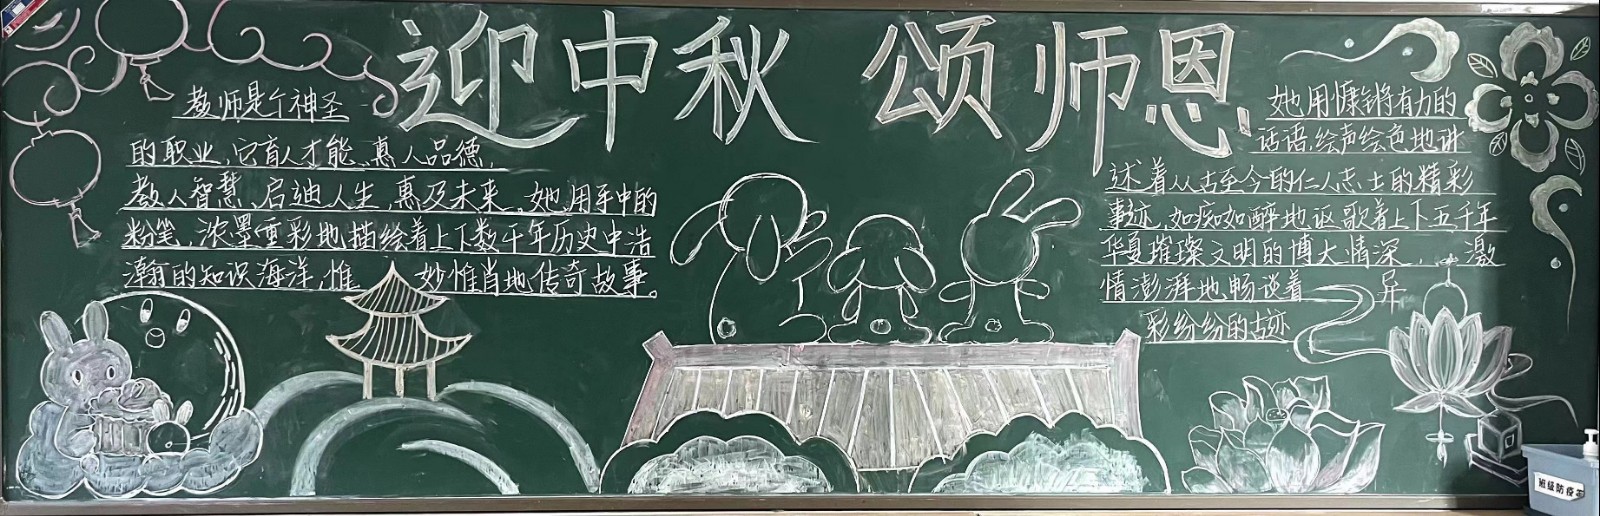 迎中秋 颂师恩
教师是个神圣
的职业,它育人才能,惠人品德,
教人智慧,启迪人生,惠及未来。她用手中的
粉笔,浓墨重彩地描绘着上下数千年历史中浩
瀚的知识海洋,惟 妙惟肖地传奇故事。
她用慷锵有力的
话语,绘声绘色地讲
述着从古至今的仁人志士的精彩
事迹,如痴如醉地讴歌着上下五千年
华夏璀璨文明的博大情深, 激
情澎湃地畅谈着 异
彩纷纷的古迹
班级防疫